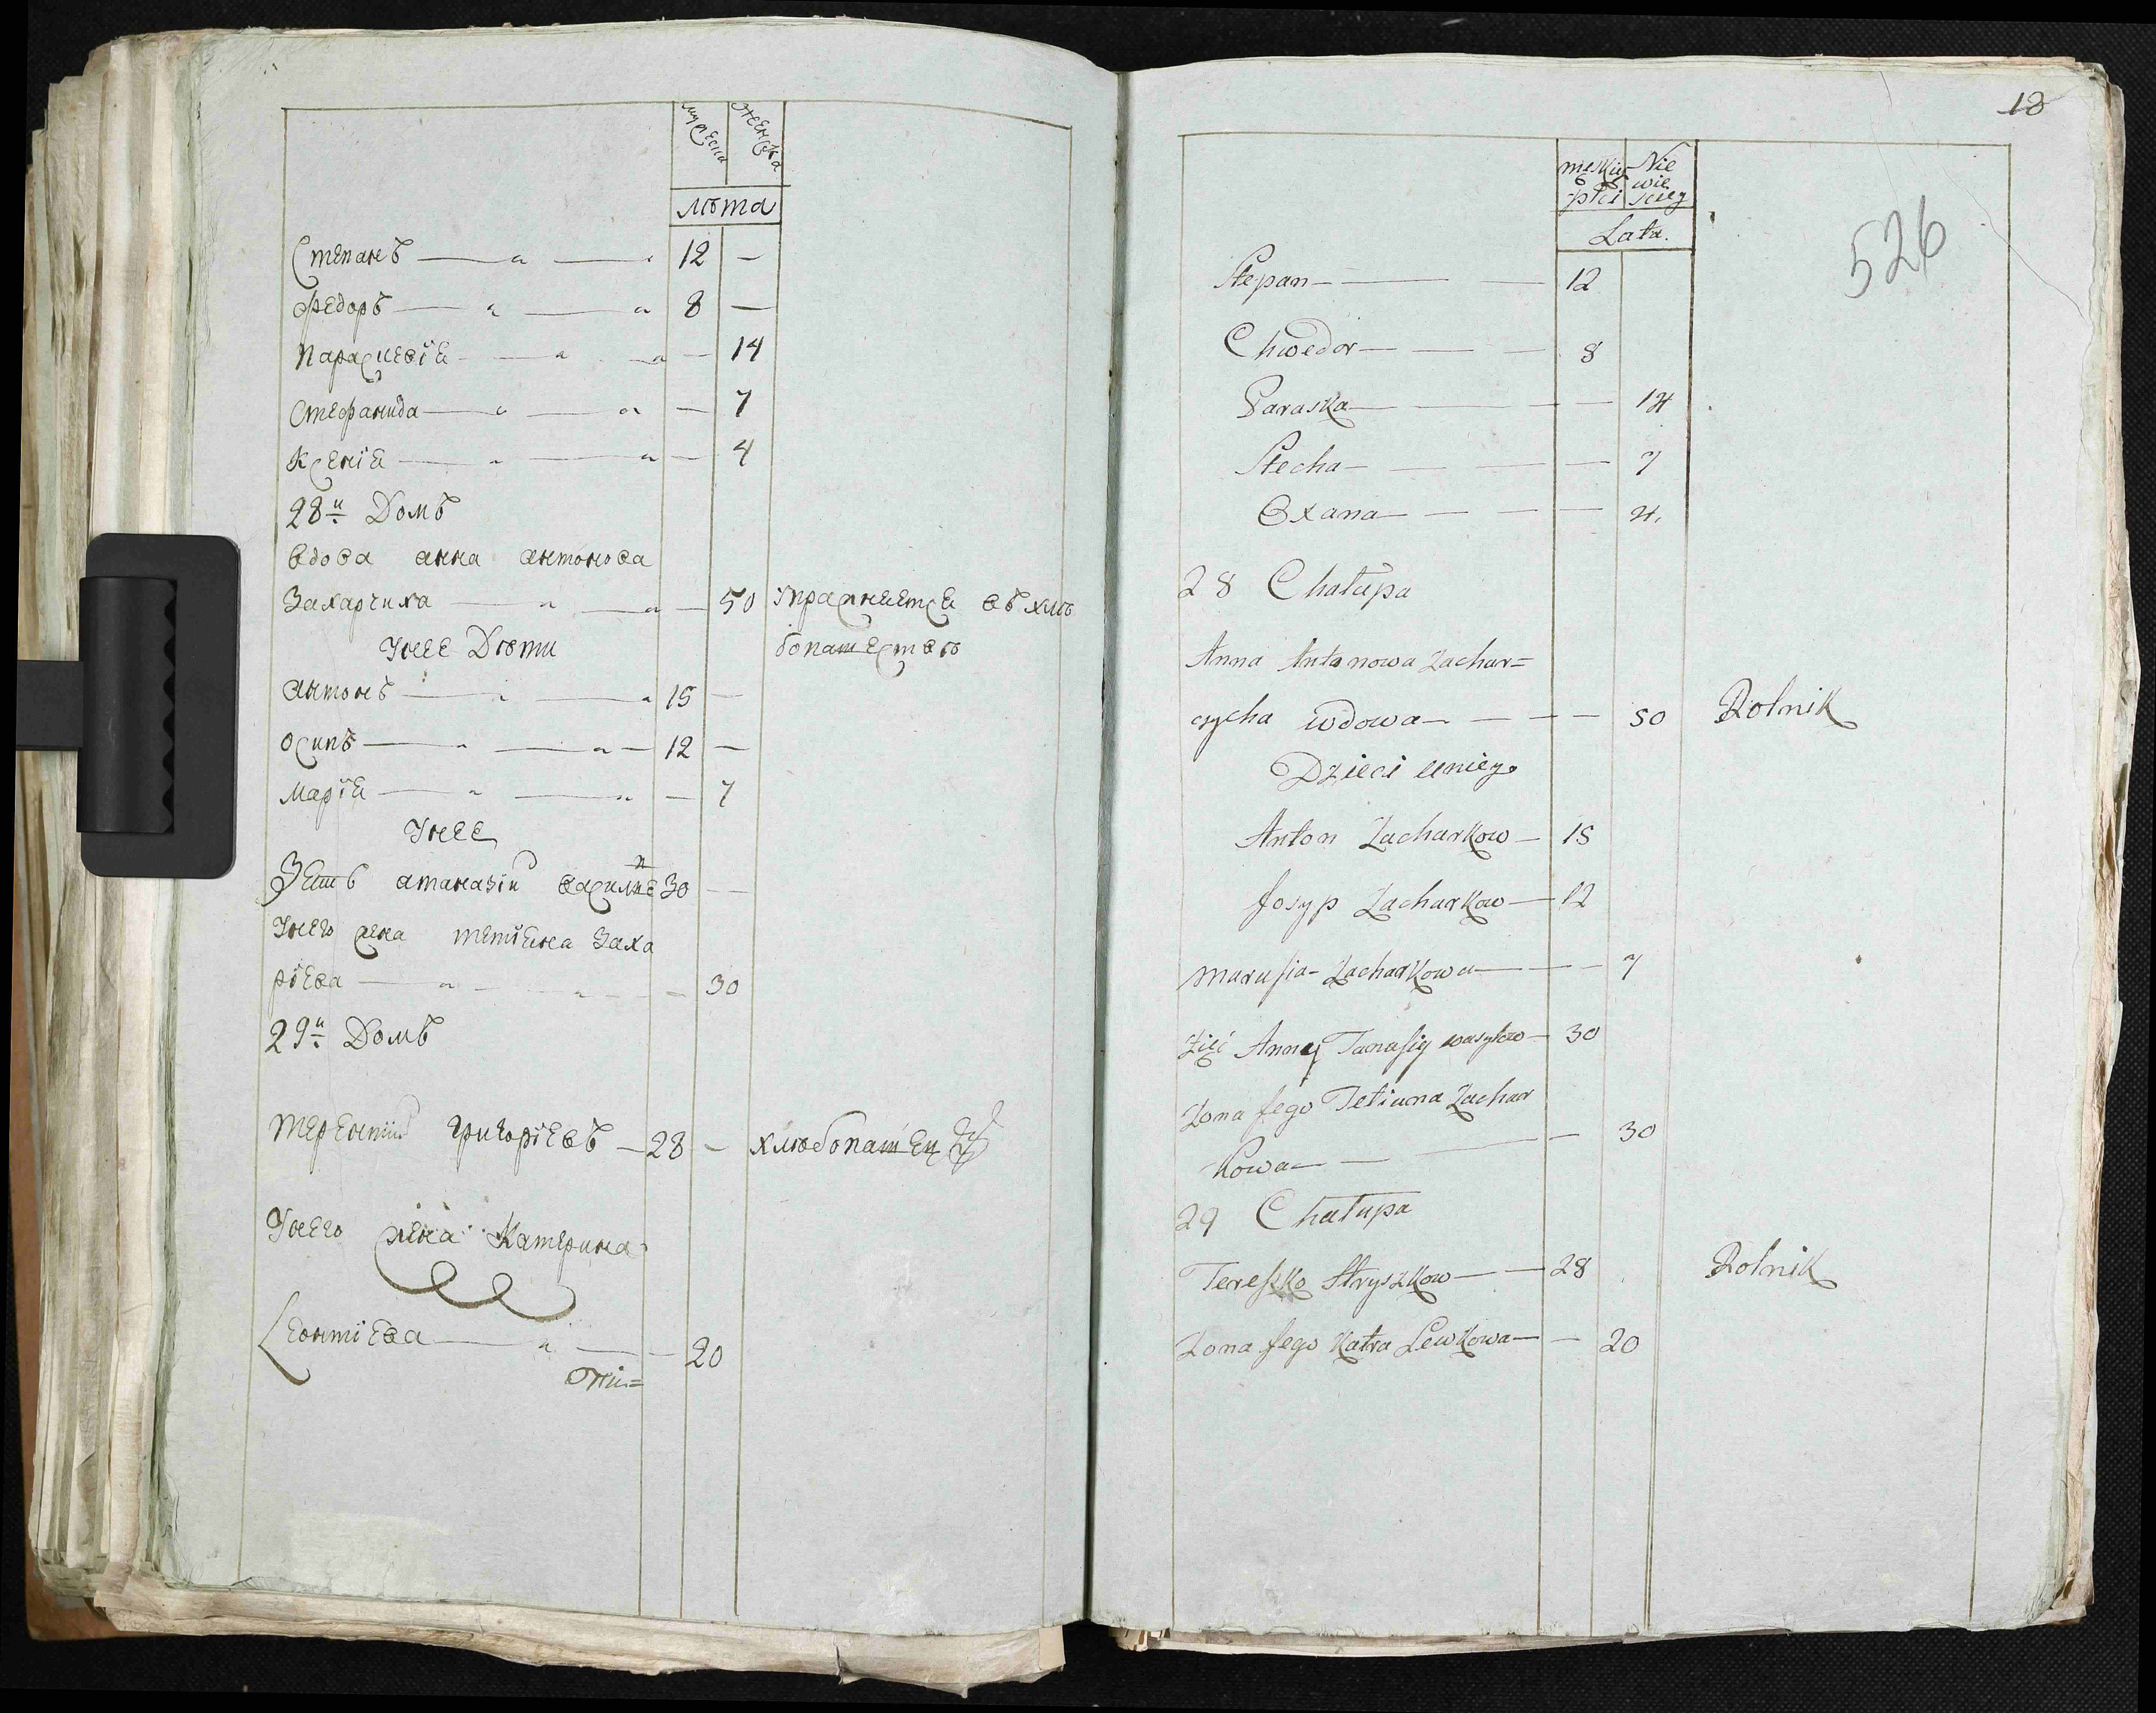 мужеска женска
лѣта
Степанъ — „ — 12 —
Федоръ — „ — „ 8 —
Параскевія — „ — „ — 14
Стефанида — „ — „ — 7
Ксенія — „ — „ — 4
28й Домъ
вдова анна антонова
Захарчиха — „ — „ — 50 Упражняется въ хлѣ
Унее Дѣти бопашествѣ
антонъ — „ — „ 15 —
осипъ — „ — „ — 12 —
Марія — „ — „ — 7
Унее
Зять атаназій василіе 30 —
Унего жена тетіяна Заха
ріева — „ — „ — 30
29й Домъ
терентій григоріевъ — 28 — хлѣбопашец
Унего жена Катерина
Леонтіева — „ — — 20
18
526
męskiey płci Niewiesciey
Lata.
Stepan — — — 12
Chwedor — — — 8
Paraska — — — — 14
Stecha — — — — 7
Oxana — — — — 4.
28 Chałupa
Anna Antonowa Zachar=
czycha wdowa — — — — 50 Rolnik
Dzieci uniey
Anton Zacharkow — 15
Josyp Zacharkow — 12
Marusia Zacharkowa — — — 7
Zięć Anny Tanasiy wasylow — 30
Zona Jego Tetiana Zachar
kowa — — — — 30
29 Chałupa
Tereszko Hryszkow — — 28 Rolnik
Zona Jego Katra Lewkowa — — 20